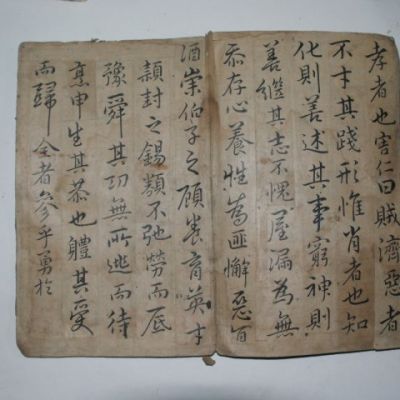 孝者也害仁曰賊濟惡者
不才其踐形惟肖者也知
化則善述其事窮神則
善繼其志不愧屋漏為無
忝存心養性為匪懈惡旨
酒崇伯子之顧養育英才
頴封之錫類不弛勞而底
豫舜其功無所逃而待
烹申生其恭也體其受
而歸全者參乎勇於